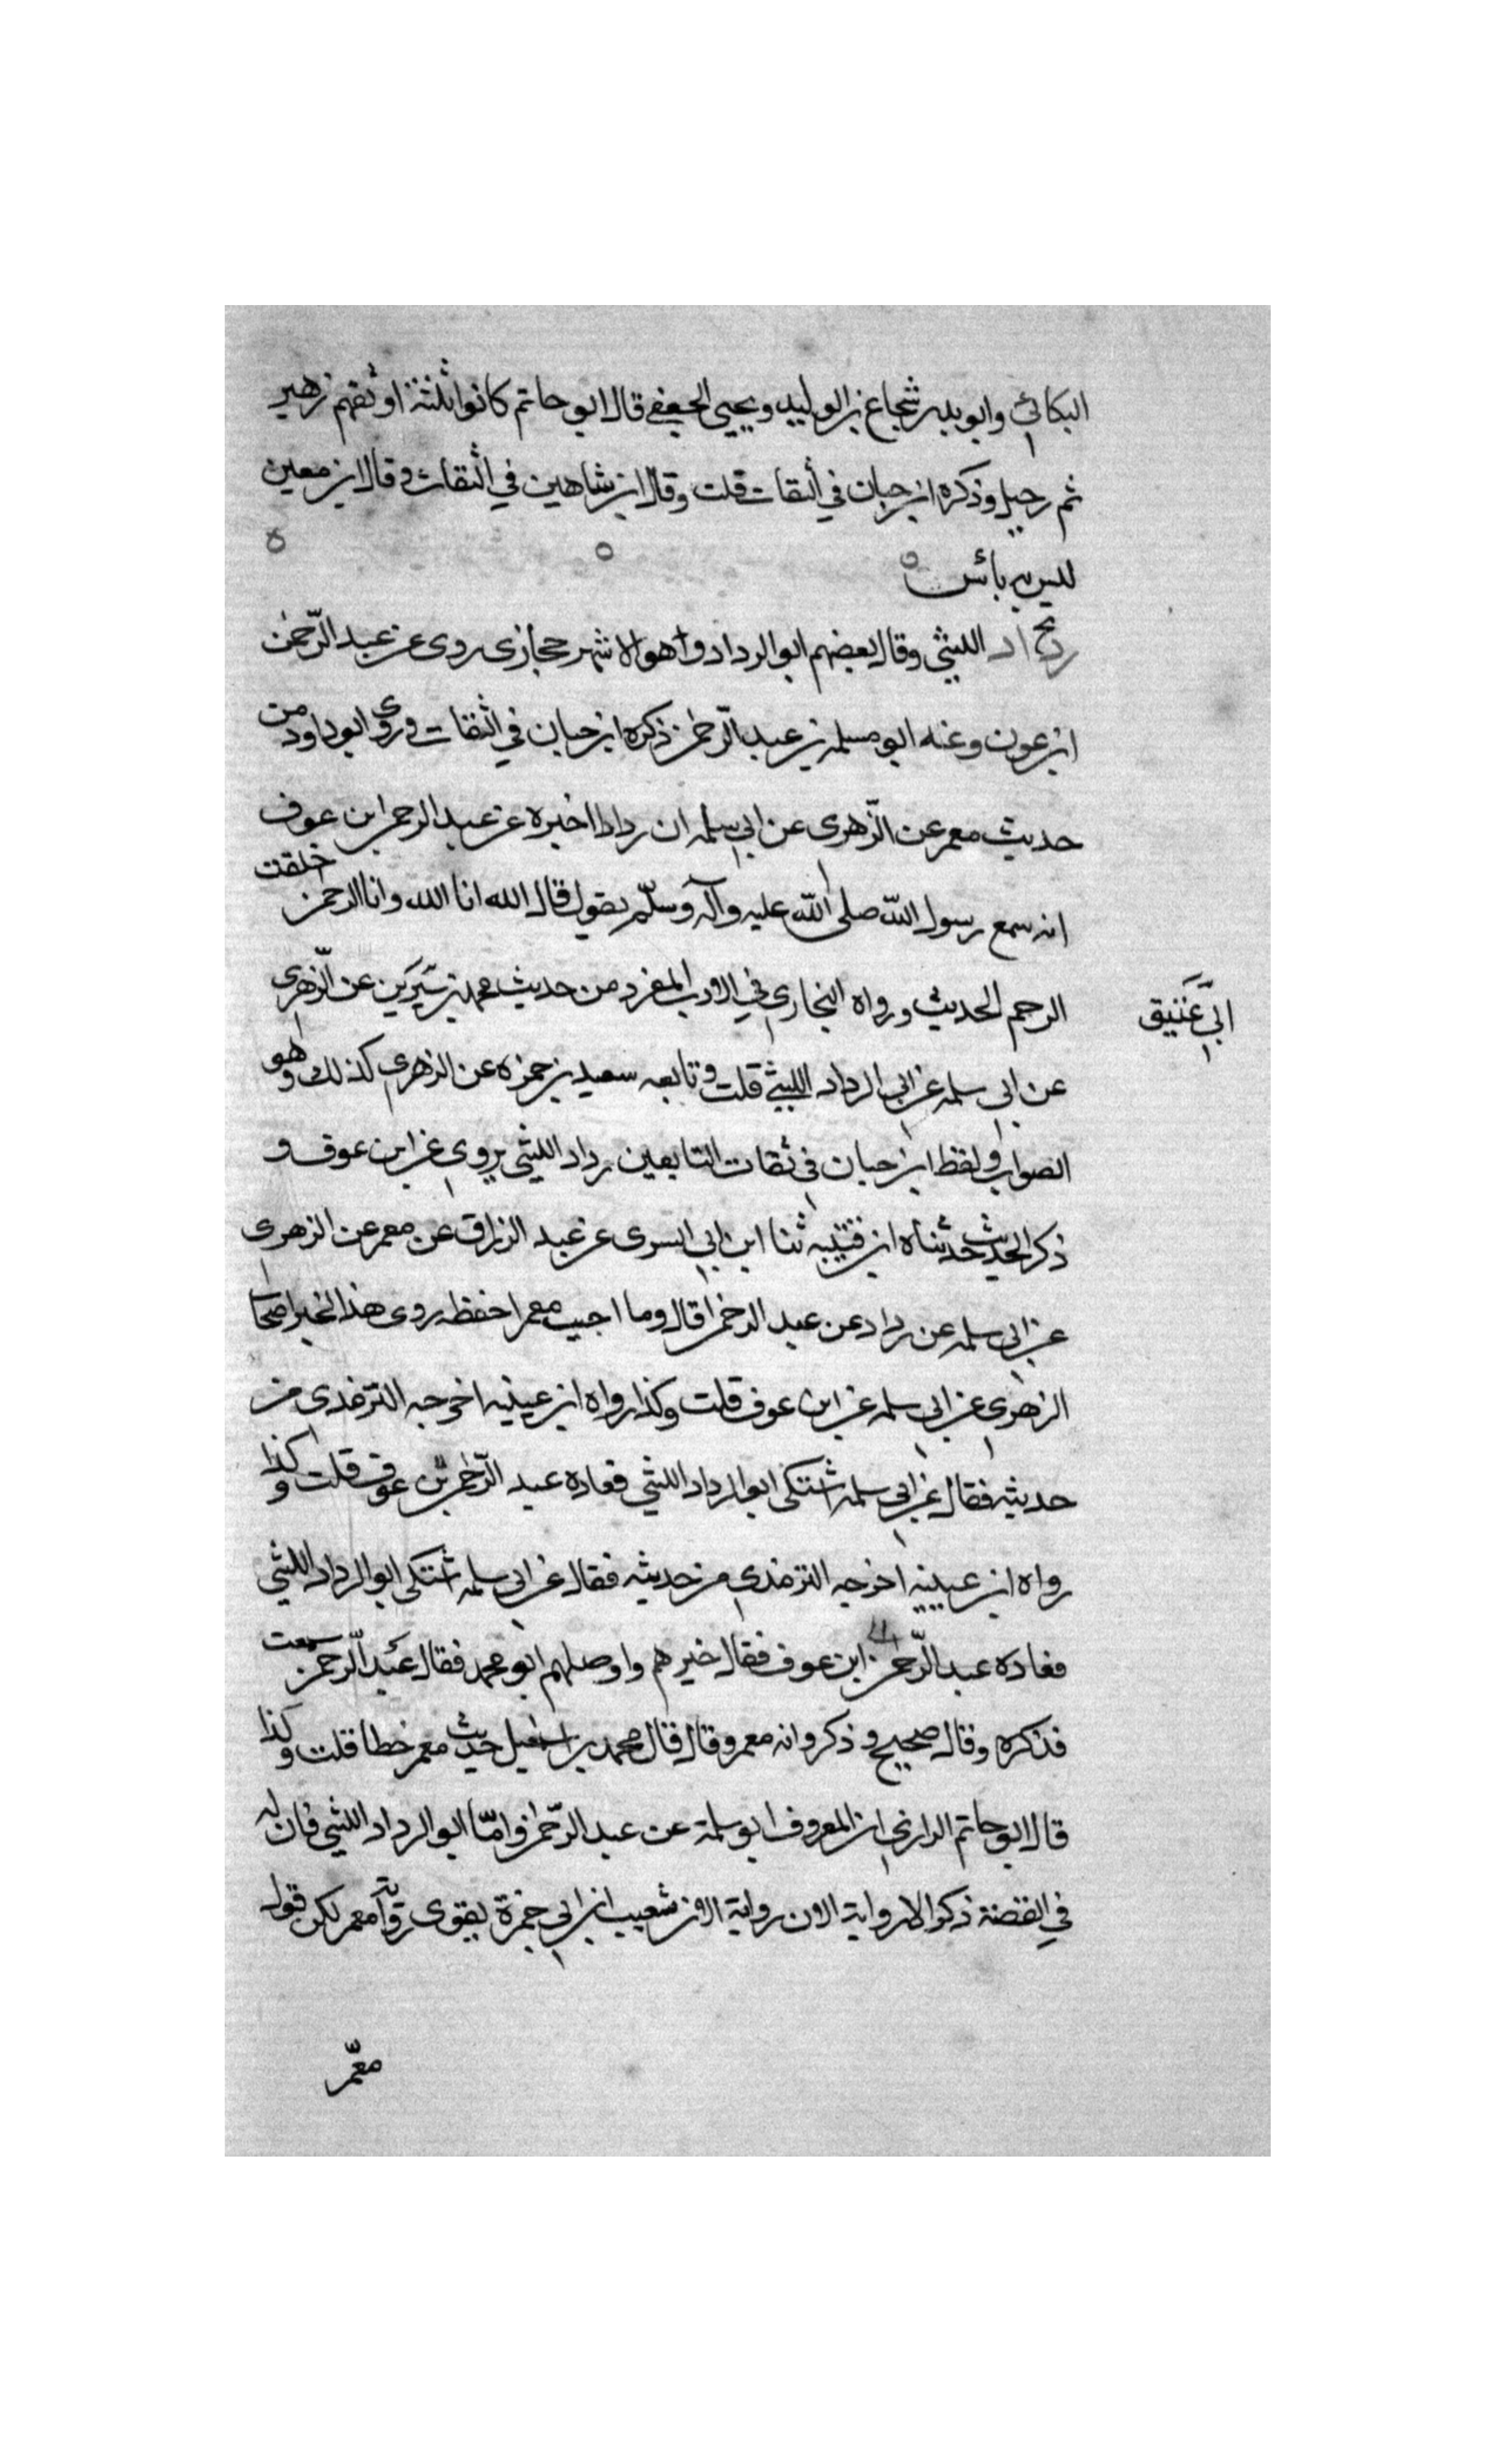 البكائي وابو بدر شجاع بن الوليد ويحيى الجعفي قال ابو حاتم كانوا ثلثة اوثقهم زهير
ثم رحيل وذكره ابن حبان في الثقات قلت وقال ابن شاهين في الثقات وقال ابن معين
ليس به بائس
رداد الليثي وقال بعضهم ابو الرداد وهو الاشهر حجازى روى عن عبد الرحمن
ابن عون وعنه ابو مسلمه بن عبد الرحمن ذكره ابن حبان في الثقات وروى ابو داود من
حديث معمر عن الزهرى عن ابي سلمه ان ردادا اخبره عن عبد الرحمن ابن عوف
انه سمع رسول الله صلى الله عليه وآله وسلم يقول قال الله انا الله وانا الرحمن خلقت
الرحم الحديث ورواه البخاري في الادب المفرد من حديث محمد بن عن الزهرى
ابي عتيق
عن ابي سلمه عن ابي الرداد الليثي قلت وتابعه سعيد بن حمزه عن الزهري كذلك وهو
الصواب ولفظ ابن حبان في ثقات التابعين رداد الليثي يروى عن ابن عوف و
ذكر الحديث حدثناه ابن قتيبه ثنا ابن ابي السرى عن عبد الرزاق عن معمر عن الزهرى
عن ابي سلمه عن رداد عن عبد الرحمن قال وما احيب معمرا حفظه روى هذا الخبر اصحاب
الزهري عن ابي سلمه عن ابن عوف قلت وكذا رواه ابن عيينه اخرجه الترمذى من
حديثه فقال عن ابي سلمه اشتكى ابو الرداد الليثي فعاده عبد الرحمن بن عوف قلت وكذا
رواه ابن عيينه اخرجه الترمذي من حديثه فقال عن ابي سلمه اشتكى ابو الرداد الليثي
فعاده عبد الرحمن ابن عوف فقال خيرهم واوصلهم ابو محمد فقال عبد الرحمن سمعت
فذكره وقال صحيح وذكر وانه معمر وقال قال محمد بن اسمعيل حديث معمر خطا قلت وكذا
قال ابو حاتم الرازي ان المعروف ابو سلمة عن عبد الرحمن واما ابو الرداد الليثي فان له
في القصة ذكر الا رواية الا ان رواية شعيب ابن ابي حمزة يقوى رواية معمر لكن قول
معمر